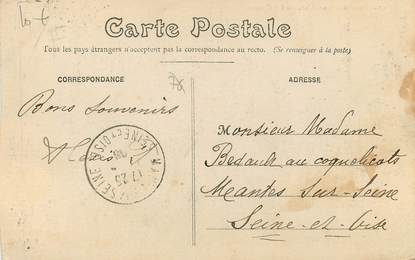 Carte Postale
Tous les pays étrangers n'acceptent pas la correspondance au recto. (Se renseigner à la poste)
CORRESPONDANCE
ADRESSE
Bons Souvenirs
Monsieur Madame
Bedault au coquelicots
Mantes Sur Seine
Seine-et-Oise
SEINE ET OISE
17 25